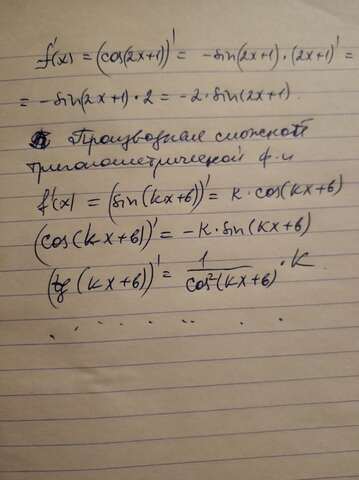 f'(x) = (cos(2x+1))' = -sin(2x+1)·(2x+1)' =
= -sin(2x+1)·2 = -2·sin(2x+1).
Производная сложной
тригонометрической ф-и
f'(x) = (sin(kx+b))' = k·cos(kx+b)
(cos(kx+b))' = -k·sin(kx+b)
(tg(kx+b))' = 1/cos²(kx+b) · k
. . . . . . . .